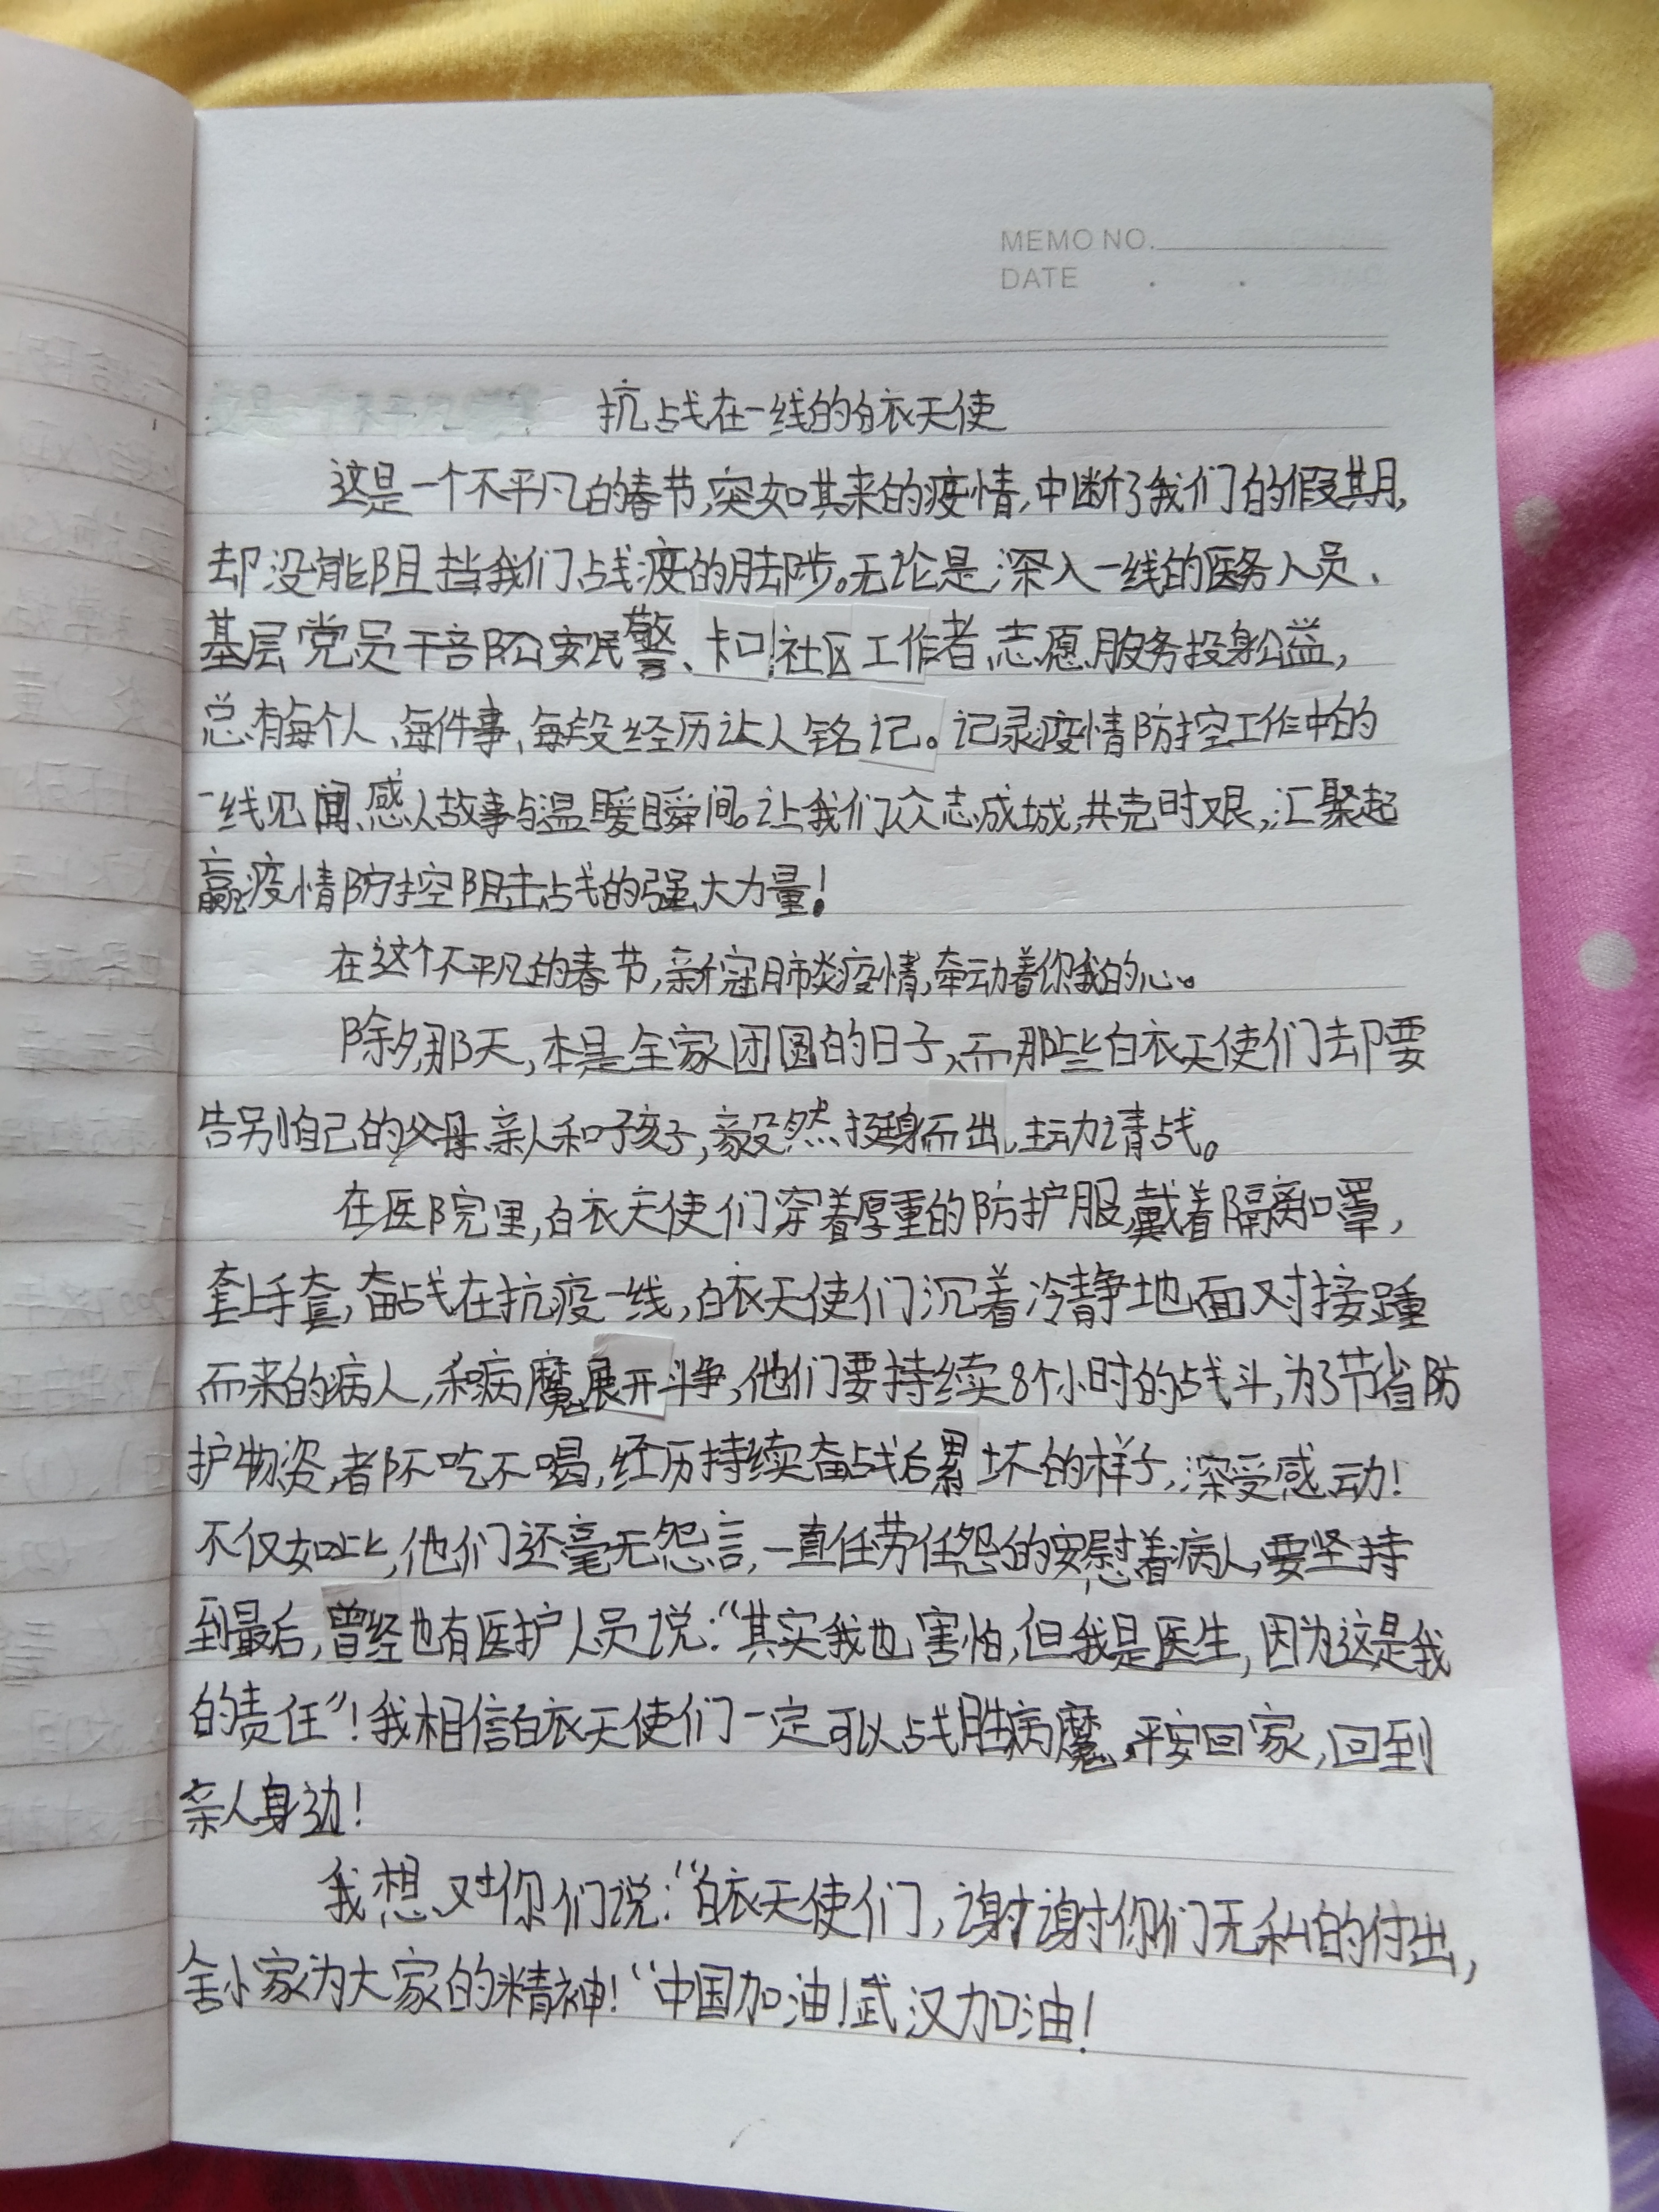 MEMO NO.
DATE . .
抗战在一线的白衣天使
这是一个不平凡的春节,突如其来的疫情,中断了我们的假期,
却没能阻挡我们战疫的脚步。无论是深入一线的医务人员、
基层党员干部、公安民警、卡口!社区工作者、志愿服务投身公益,
总有每个人、每件事、每段经历让人铭记。记录疫情防控工作中的
一线见闻、感人故事与温暖瞬间。让我们众志成城,共克时艰,汇聚起
赢疫情防控阻击战的强大力量!
在这个不平凡的春节,新冠肺炎疫情,牵动着你我的心。
除夕那天,本是全家团圆的日子,而那些白衣天使们却要
告别自己的父母、亲人和子孩子,毅然挺身而出,主动请战。
在医院里,白衣天使们穿着厚重的防护服,戴着隔离口罩,
套上手套,奋战在抗疫一线,白衣天使们沉着冷静地面对接踵
而来的病人,和病魔展开斗争,他们要持续8个小时的战斗,为了节省防
护物资,都不吃不喝,经历持续奋战后累坏的样子,深受感动!
不仅如此,他们还毫无怨言,一直任劳任怨的安慰着病人,要坚持
到最后,曾经也有医护人员说:“其实我也害怕,但我是医生,因为这是我
的责任”!我相信白衣天使们一定可以战胜病魔,平安回家,回到
亲人身边!
我想对你们说:“白衣天使们,谢谢你们无私的付出,
舍小家为大家的精神!“中国加油!武汉加油!